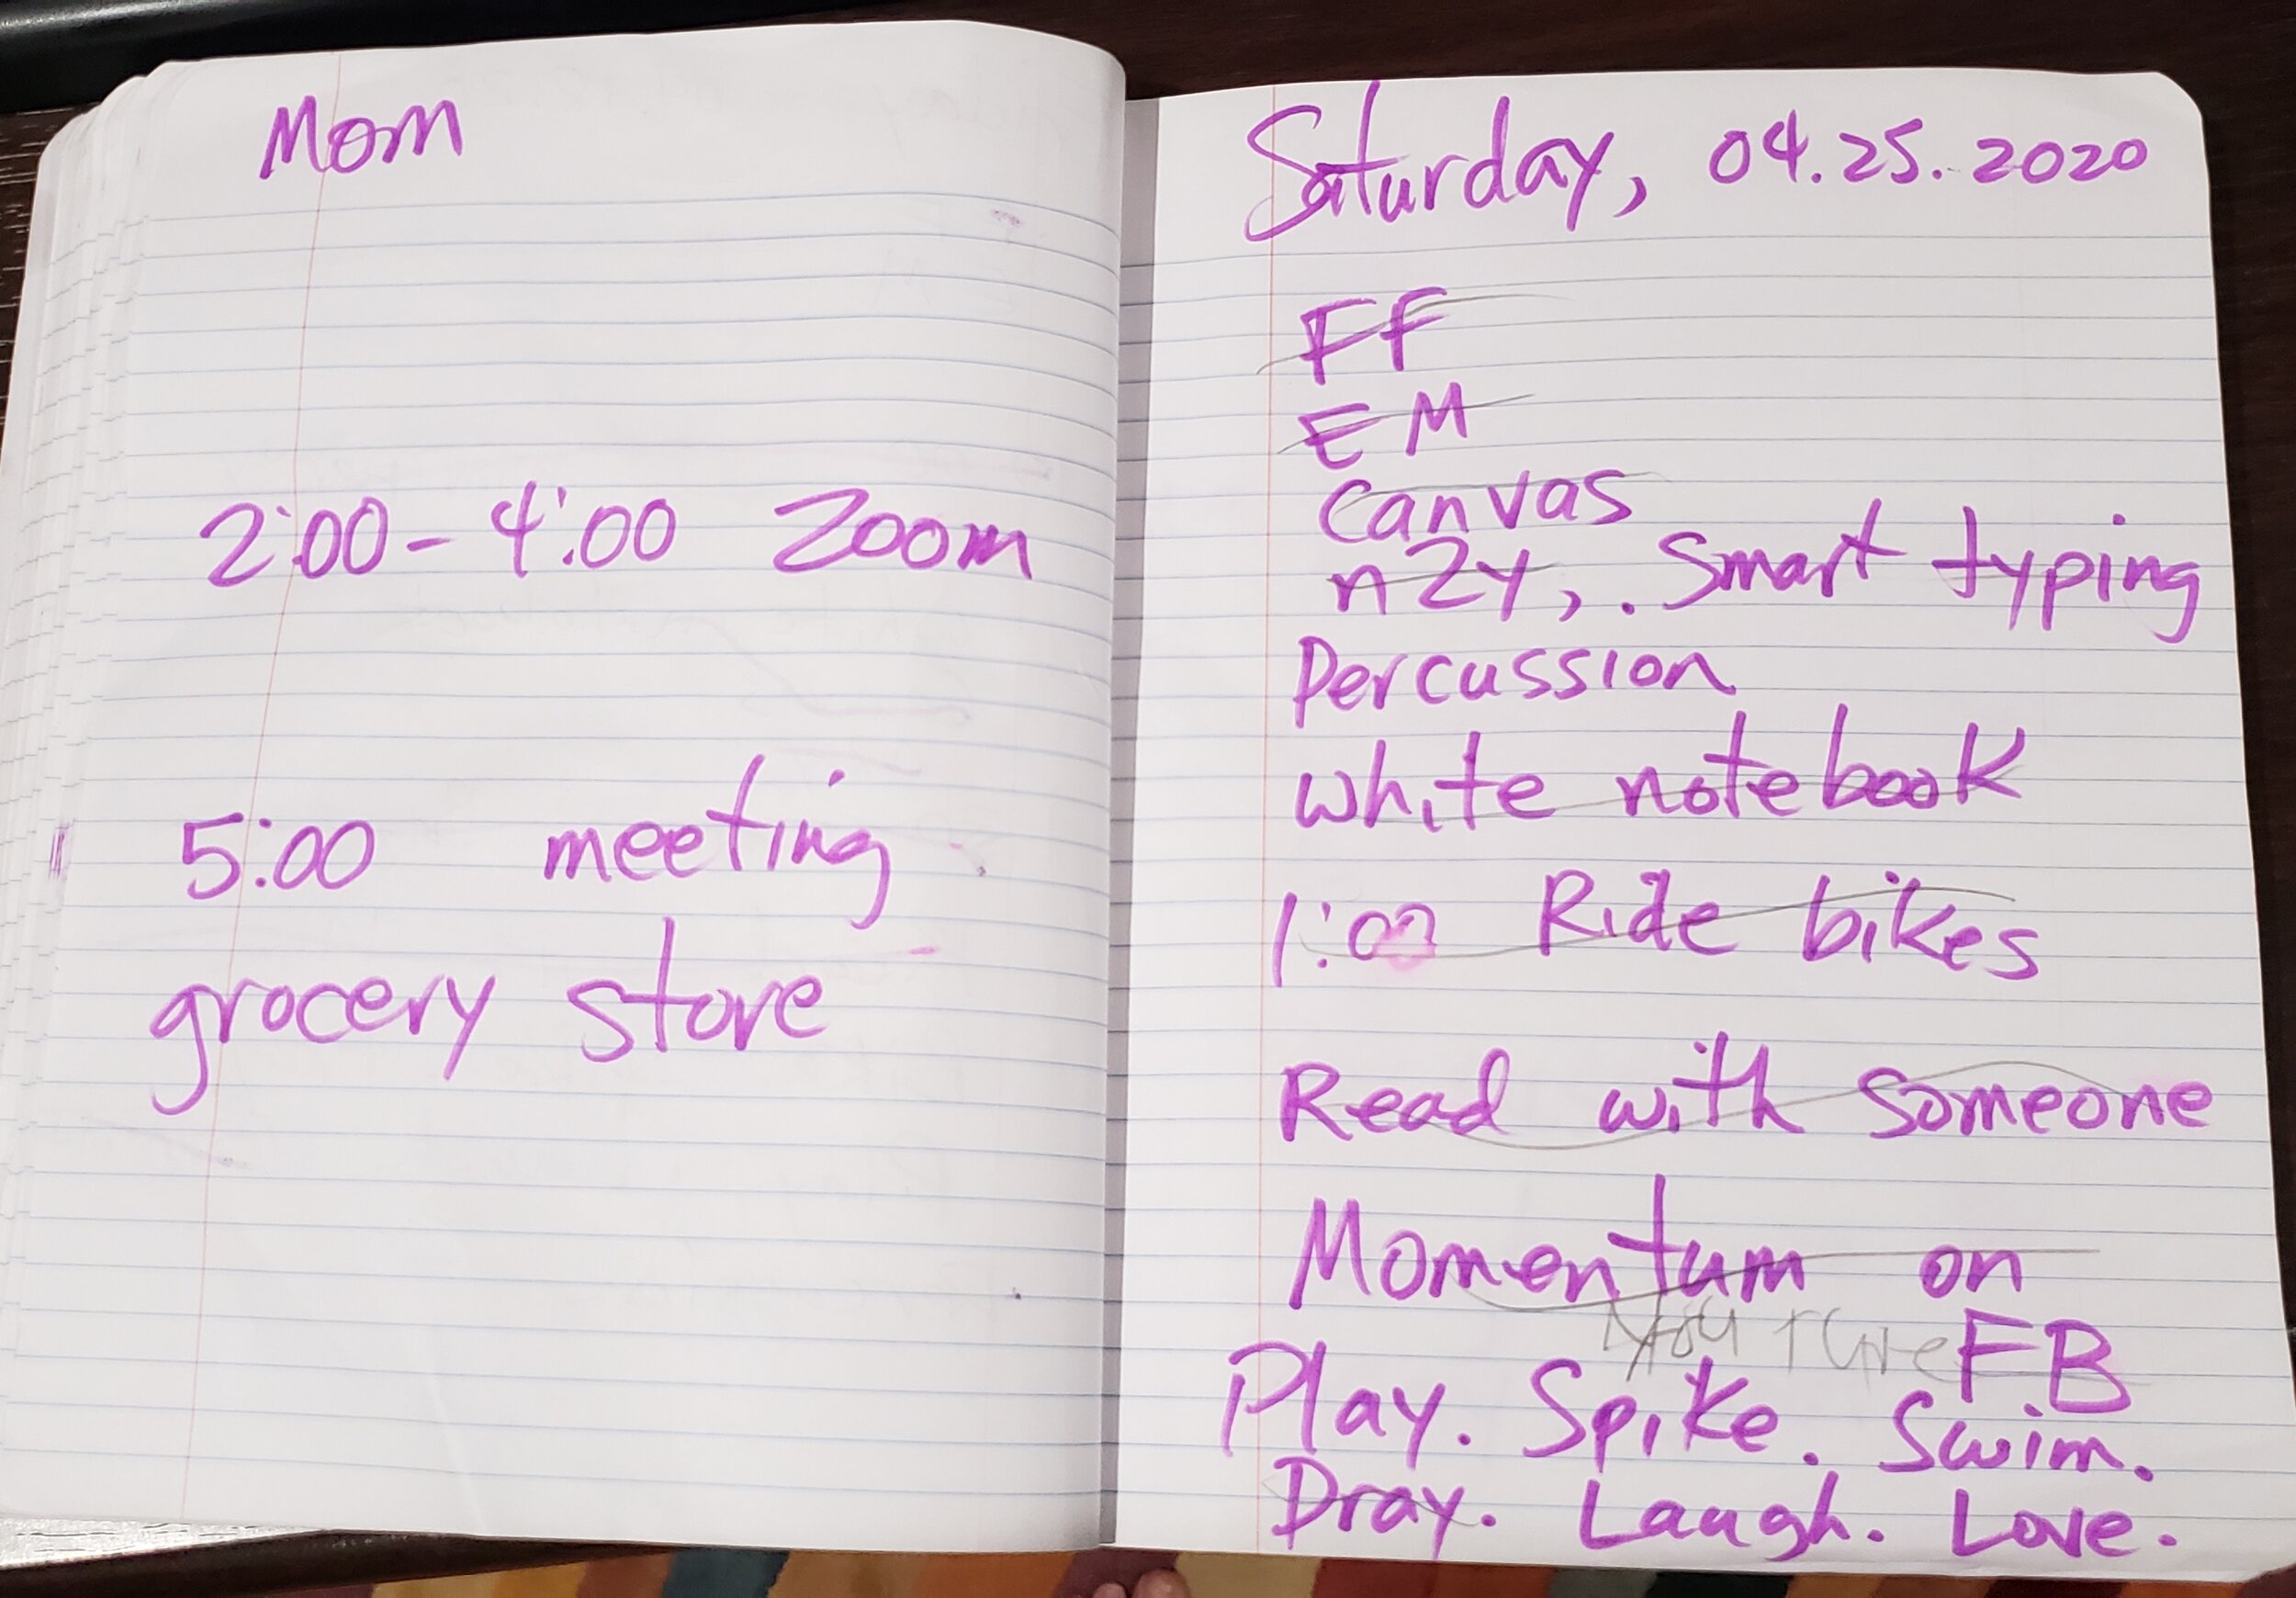 Mom
2:00-4:00 Zoom
5:00 meeting
grocery store
Saturday, 04.25.2020
FF
EM
Canvas
n2y, . Smart typing
Percussion
white notebook
1:00 Ride bikes
Read with someone
Momentum on
FB
Play. Spike. Swim.
Pray. Laugh. Love.